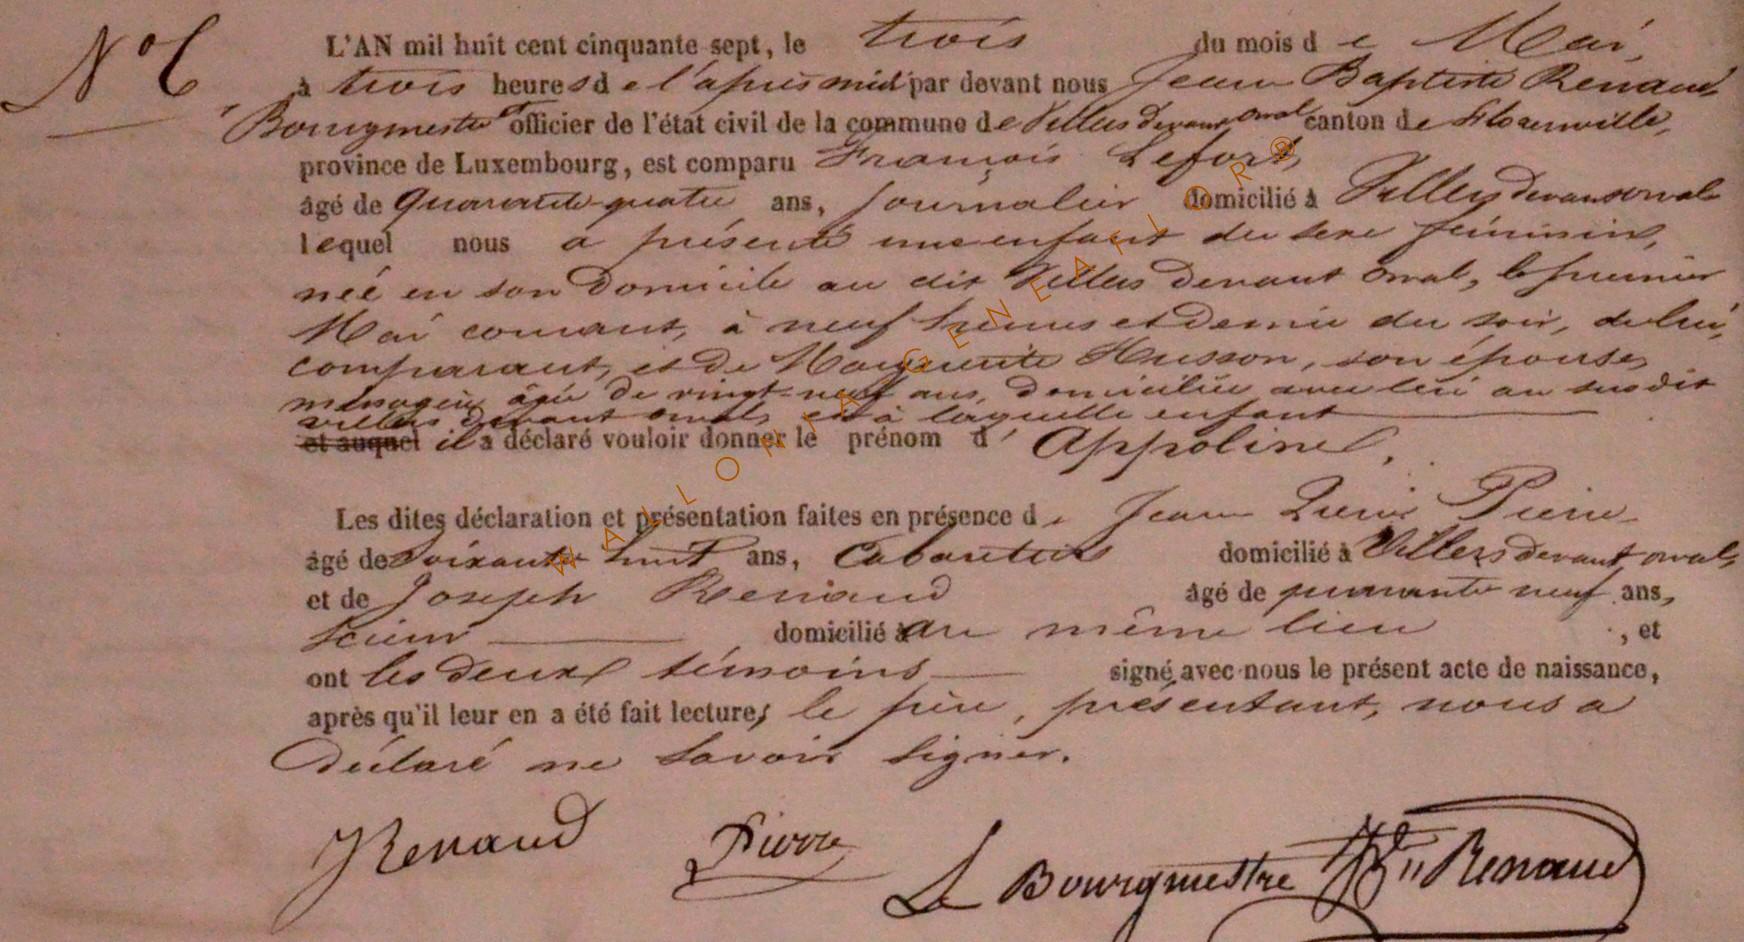 N° 6
L'AN mil huit cent cinquante sept, le trois du mois de Mai,
à trois heures de l'après midi par devant nous Jean Baptiste Renaud,
Bourgmestre et officier de l'état civil de la commune de Villers devant orval canton de Florenville,
province de Luxembourg, est comparu François Lefort,
âgé de Quarante-quatre ans, journalier domicilié à Villers devant orval
lequel nous a présenté une enfant du sexe féminin,
née en son domicile au dit Villers devant orval, le premier
Mai courant, à neuf heures et demie du soir, de lui,
comparant, et de Marguerite Husson, son épouse,
ménagère, âgée de vingt-neuf ans, domiciliée avec lui au susdit
villers devant orval, et à laquelle enfant
et auquel il a déclaré vouloir donner le prénom d'Appoline.
Les dites déclaration et présentation faites en présence de Jean Pierre
âgé de soixante huit ans, Cabaretier domicilié à Villers devant orval,
et de Joseph Renaud âgé de quarante neuf ans,
scieur domicilié à au même lieu, et
ont les deux témoins signé avec nous le présent acte de naissance,
après qu'il leur en a été fait lecture; le père, présentant, nous a
déclaré ne savoir signer.
JRenaud Pierre Le Bourgmestre JBte Renaud
WALLONIA GENEALOR®